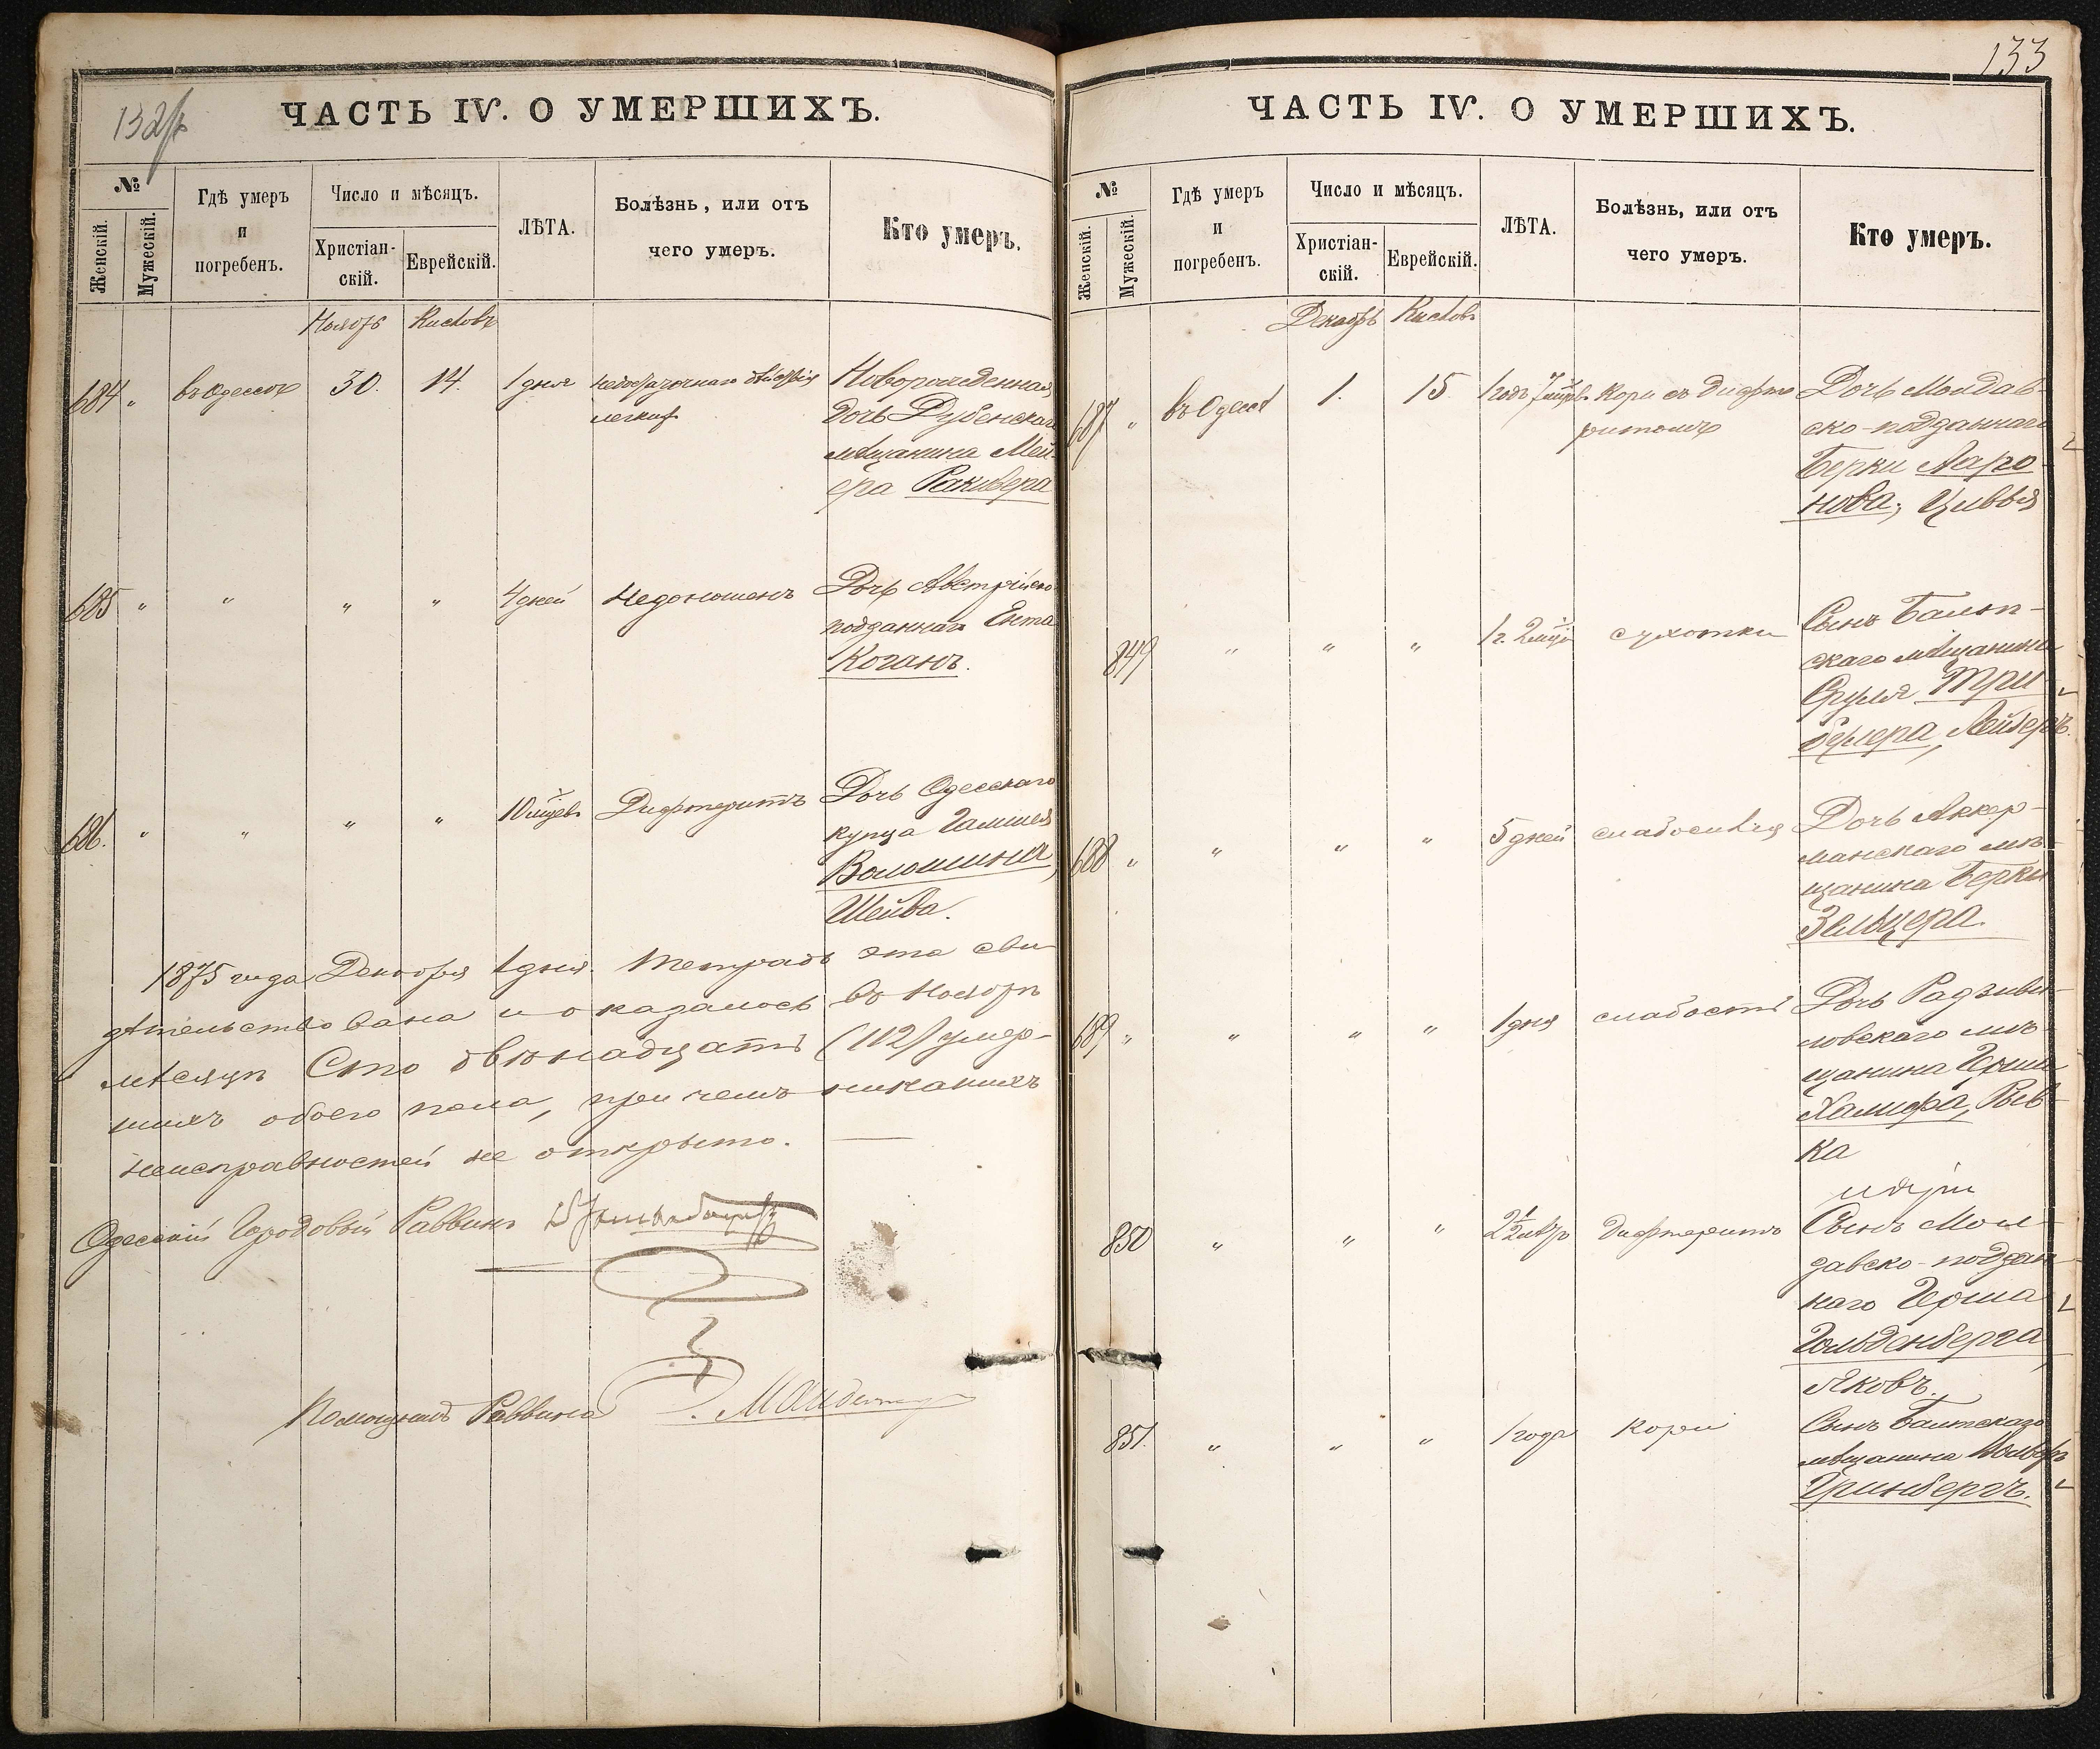 ЧАСТЬ IV. О УМЕРШИХЪ.
№
Женскій.
Мужескій.
Гдѣ умеръ
и
погребенъ.
Число и мѣсяцъ.
Христіан-
скій.
Еврейскій.
ЛѢТА.
Болѣзнь, или отъ
чего умеръ.
Кто умеръ.
Ноябрь Кислевъ
684 " въ Одессѣ 30. 14. 1 дня недостаточнаго дѣйствія Новорожденная
легкихъ дочь Дубенскаго
мѣщанина Мей-
ера
685 " " " " 4 дней недоношенъ Дочь Австрійско
подданнаго Ента
Коганъ.
686. " " " " 10 мцевъ Дифтеритъ Дочь Одесскаго
купца
Волошина,
Шейва.
1875 года Декабря 1 дня. Тетрадь эта сви
дѣтельствована и оказалось въ Ноябрѣ
мѣсяцѣ Сто двѣнадцать (112) умер-
шихъ обоего пола, при чемъ никакихъ
неисправностей не открыто.
Одесскій Городовый Раввинъ
Помощникъ Раввина
133
ЧАСТЬ IV. О УМЕРШИХЪ.
№
Женскій.
Мужескій.
Гдѣ умеръ
и
погребенъ.
Число и мѣсяцъ.
Христіан-
скій.
Еврейскій.
ЛѢТА.
Болѣзнь, или отъ
чего умеръ.
Кто умеръ.
Декабрь Кислевъ
687 " въ Одессѣ 1. 15 1 годъ 7 мцевъ кори съ дифте Дочь Молдав-
ритомъ ско-подданнаго
Берки Ааро-
нова, Цивья
849 " " " 1 г. 2 мцъ сухотки Сынъ
скаго мѣщанина
Сруля Три-
Лейзеръ.
688 " " " " 5 дней слабосилія Дочь Аккер-
манскаго мѣ-
щанина Берки
Зельцера.
689 " " " " 1 дня слабости Дочь Радзиви-
ловскаго мѣ-
щанина Герша
Халифа, Рив-
ка
850 " " " 2½ Дифтеритъ Сынъ Мол-
давско-поддан
наго Герша
Гольденберга,
Яковъ.
851. " " " 1 года кори Сынъ Балтскаго
мѣщанина
Гринбергъ.